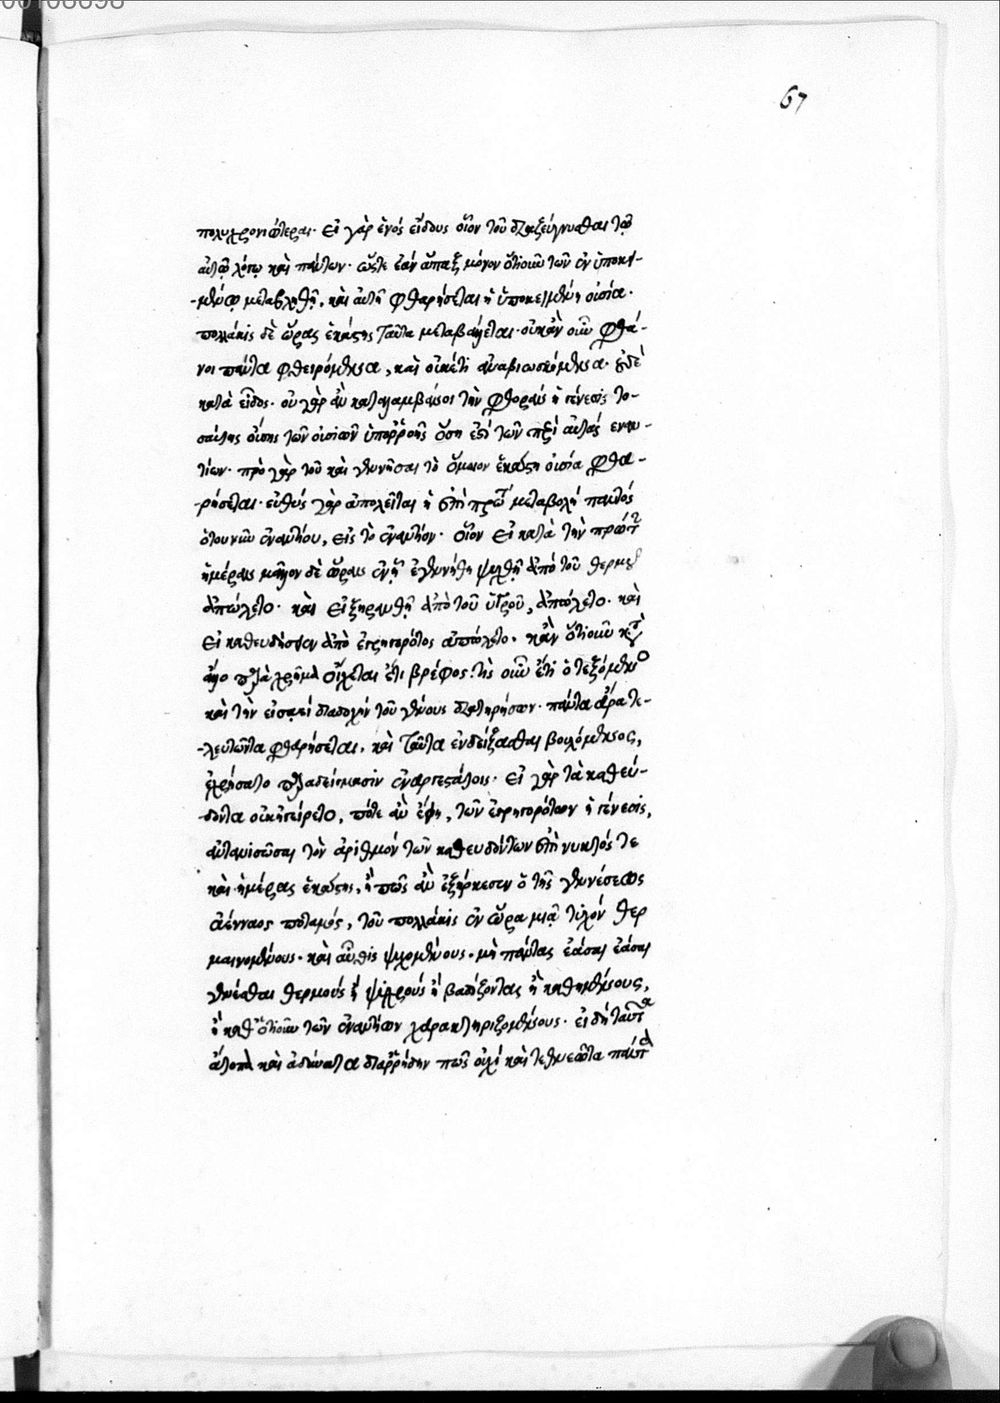 00108698
67
πολυχρονιώτεραι. εἰ γὰρ ἑνὸς εἴδους οἷον τοῦ διαζεύγνυσθαι τῷ
αὐτῷ λόγῳ καὶ πάντων. ὥστε ἐὰν ἅπαξ μόνον ὁτιοῦν τῶν ἐν ὑποκει-
-μένῳ μεταβληθῇ, καὶ αὐτὴ φθαρήσεται ἡ ὑποκειμένη οὐσία.
πολλάκις δὲ ὥρας ἑκάστης ταῦτα μεταβάλλεται. οὐκἂν οὖν φθά-
νοι πάντα φθειρόμενα, καὶ οὐκέτι ἀναβιωσκόμενα. οὐδὲ
κατὰ εἶδος. οὐ γὰρ ἂν καταλαμβάνοι τὴν φθορὰν ἡ γένεσις το-
σαύτης οὔσης τῶν οὐσιῶν ὑπορροῆς ὅση ἐστὶ τῶν περὶ αὐτὰς ἐναν-
τίων. πρὸ γὰρ τοῦ καὶ γεννῆσαι τὸ ὅμοιον ἑκάστη οὐσία φθα-
-ρήσεται. εὐθὺς γὰρ ἀπολεῖται ἡ ἐπὶ πρώτῃ μεταβολῇ παντὸς
ὁτουοῦν ἐναντίου, εἰς τὸ ἐναντίον. οἷον εἰ κατὰ τὴν πρώτ
ἡμέραν μᾶλλον δὲ ὥραν ἐν ᾗ ἐγεννήθη ψυχθῇ ἀπὸ τοῦ θερμοῦ
ἀπώλετο. καὶ εἰ ξηρανθῇ ἀπὸ τοῦ ὑγροῦ, ἀπώλετο. καὶ
εἰ καθευδήσειεν ἀπὸ ἐγρηγορότος ἀπώλετο. κἂν ὁτιοῦν κατ
ἄλλο παραχρῆμα οἴχεται ἔτι βρέφος. τίς οὖν ἔτι ὁ τεξόμενος
καὶ τὴν εἰσαεὶ διαδοχὴν τοῦ γένους διατηρήσων. πάντα ἄρα τε-
-λευτῶντα φθαρήσεται. καὶ ταῦτα ἐνδείξασθαι βουλόμενος,
ἐχρήσατο παραδείγμασιν ἐναργεστάτοις. εἰ γὰρ τὰ καθεύ-
-δοντα οὐκ ἠγείρετο, πότε ἂν ἔφη, τῶν ἐγρηγορότων ἡ γένεσις,
ἀντανισῶσαι τὸν ἀριθμὸν τῶν καθευδόντων ἐπὶ νυκτός τε
καὶ ἡμέρας ἑκάστης, ἢ πῶς ἂν ἐξήρκεσεν ὁ τῆς γενέσεως
ἀένναος ποταμός, τοῦ πολλάκις ἐν ὥρα μιᾷ τυχόν θερ
μαινομένους. καὶ αὖθις ψυχομένους. μὴ πάντας ἐάσαι ἐάσαι
γενέσθαι θερμοὺς ἢ ψυχροὺς ἢ βαδίζοντας ἢ καθημένους,
ἢ καθ' ὁτιοῦν τῶν ἐναντίων χαρακτηριζομένους. εἰ δὴ ταῦτα
ἄτοπα καὶ ἀδύνατα διαρρήδην πῶς οὐχὶ καὶ τεθνεῶτα πάντα